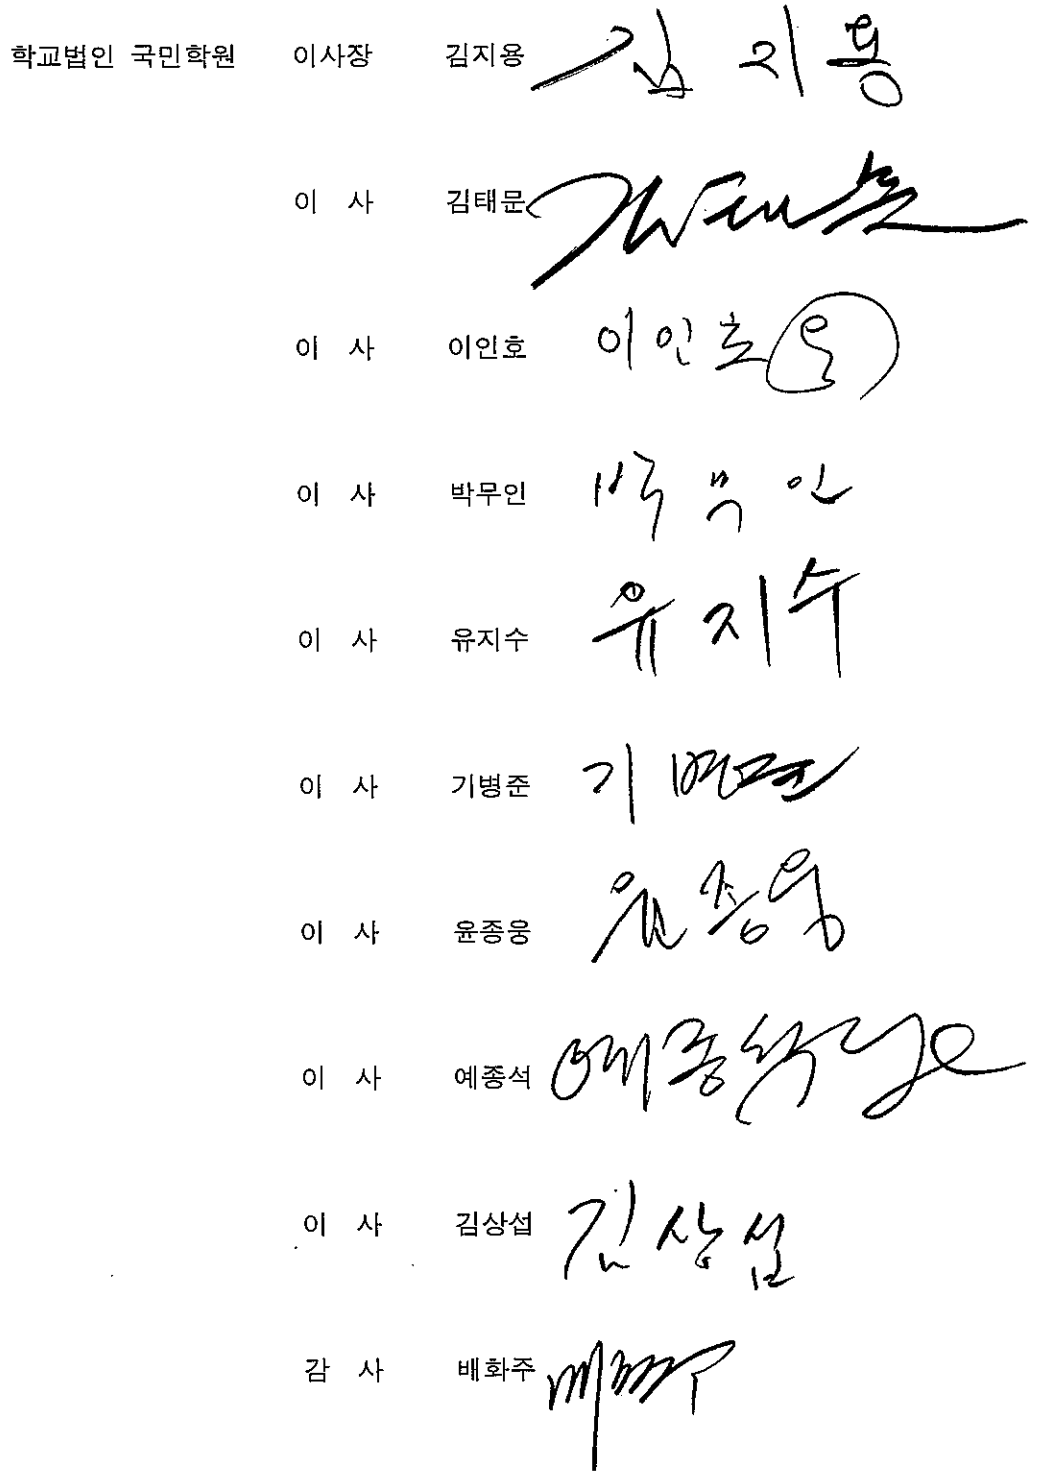 학교법인 국민학원 이사장 김지용 김지용
이 사 김태문 김태문
이 사 이인호 이인호
이 사 박무인 박무인
이 사 유지수 유지수
이 사 기병준 기병준
이 사 윤종웅 윤종웅
이 사 예종석 예종석
이 사 김상섭 김상섭
감 사 배화주 배화주